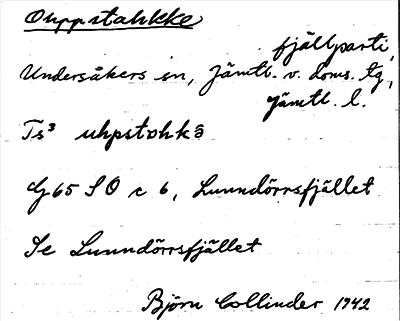 Ouppstahkke
fjällparti,
Undersåkers sn, Jämtl. v. doms. tg,
Jämtl. l.
Ts³ uhpstɒhkə̂
G 65 SO c 6, Lunndörrsfjället
Se Lunndörrsfjället
Björn Collinder 1942